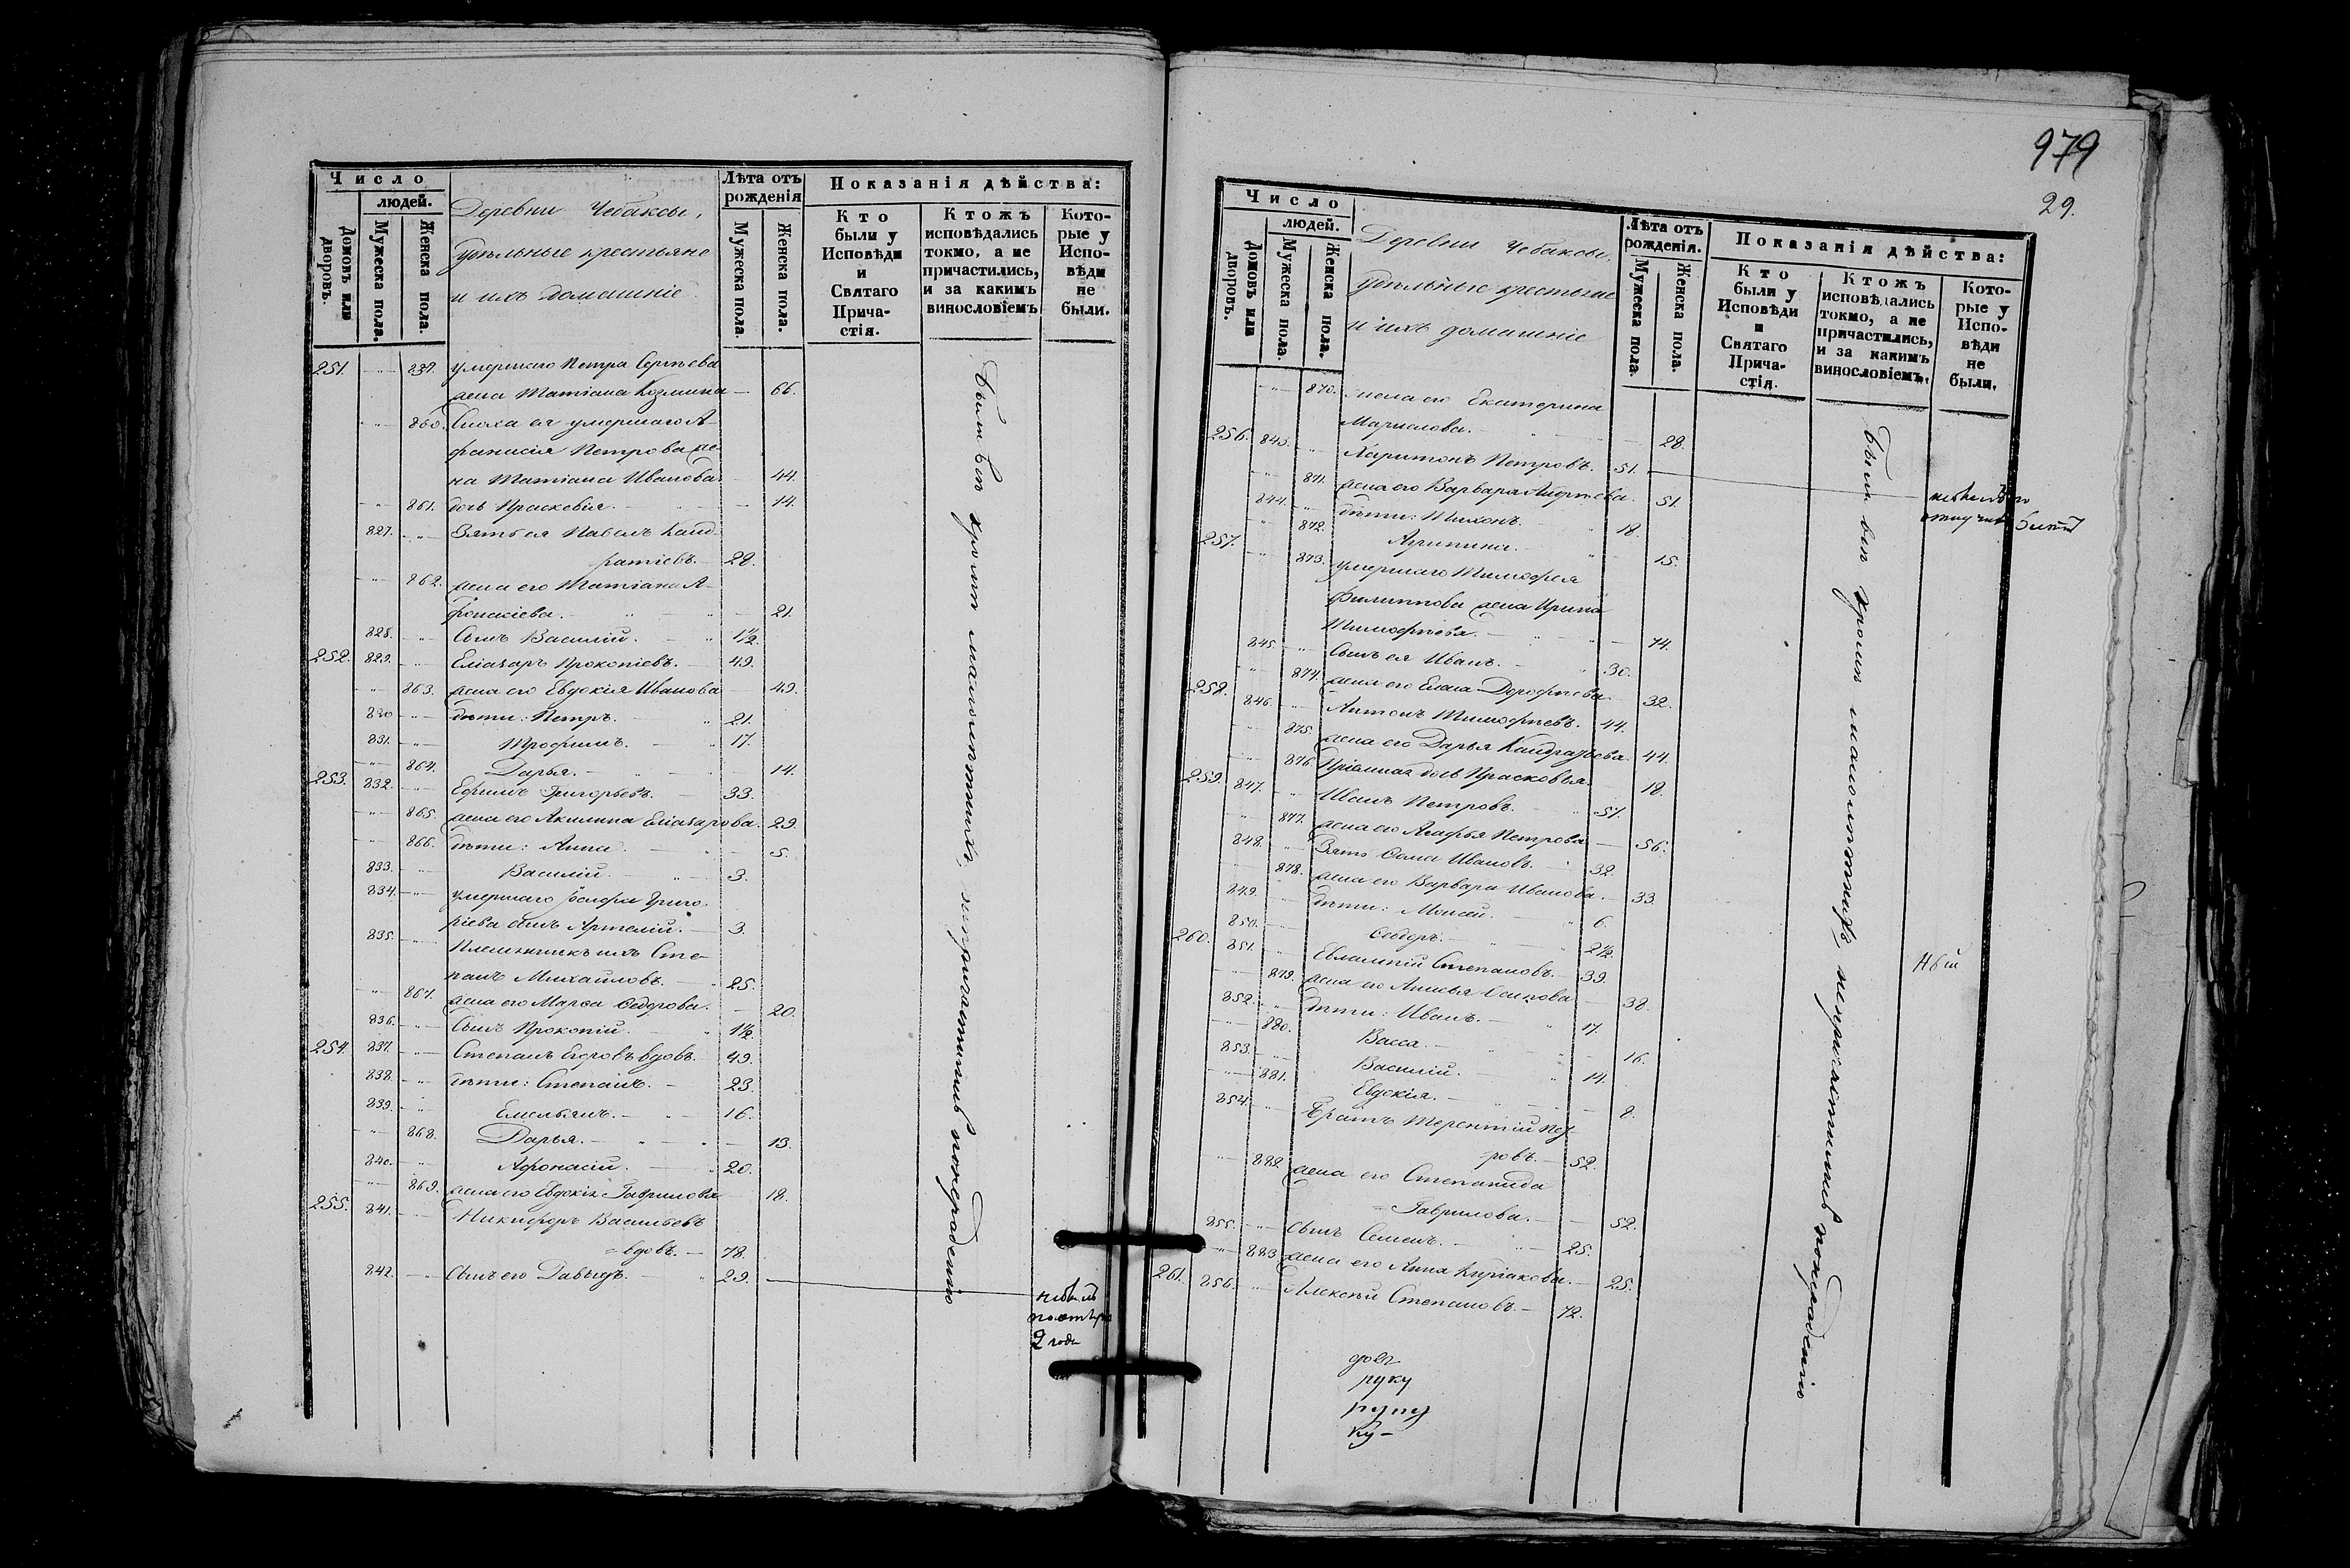 Число
людей.
Домовъ или дворовъ.
Мужеска пола.
Женска пола.
Деревни Чебаксы,
Удѣльные крестьяне
и ихъ домашніе
Лѣта отъ рожденія
Мужеска пола.
Женска пола.
Показанія дѣйства:
Кто были у Исповѣди и Святаго Прича-стія.
Ктожъ исповѣдались токмо, а не причастились, и за какимъ винословіемъ
Кото-рые у Испо-вѣди не были.
251. 237. умершаго Петра Сергѣева
жена Татіана Козмина — 66.
860. Сноха ея умершаго А-
фанасія Петрова же-
на Татіана Иванова 44.
861. дочь Прасковія. — 14.
827. Зять ея Павелъ Канд-
ратіевъ. 28.
862. жена его Татіана А-
фонасіева. — 21.
828. Сынъ Василій. — 1½
252. 829. Еліазаръ Прокопіевъ. 49.
863. жена его Евдокія Иванова 49.
830 дѣти: Петръ. 21.
831. Трофимъ. 17.
864. Дарья. — 14.
253. 832. Ефимъ Григорьевъ. 33.
865. жена его Акилина Еліазарова. 29.
866. дѣти: Анна. — 5.
833. Василій. 3.
834. умершаго Іосифа Григо-
ріева сынъ Артемій. 3.
835. Племянникъ ихъ Сте-
панъ Михайловъ. 25.
867. жена его Марѳа Ѳедорова. 20.
836. Сынъ Прокопій. 1½
254. 837. Степанъ Егоровъ вдовъ. 49.
838. дѣти: Степанъ. 23.
839. Емельянъ. 16.
868. Дарья. — 13.
840. Афонасій. 20.
869. жена его Евдокія Гаврилова 18.
255. 841. Никифоръ Васильевъ
= вдовъ. — 78.
842. Сынъ его Давыдъ. 29.
Были всѣ кромѣ малолѣтнихъ, непричастились понерадению
небылъ
2 года
979
29.
Число
людей.
Домовъ или дворовъ.
Мужеска пола.
Женска пола.
Деревни Чебаксы,
Удѣльные крестьяне
и ихъ домашніе
Лѣта отъ рожденія.
Мужеска пола.
Женска пола.
Показанія дѣйства:
Кто были у Исповѣди и Святаго Прича-стія.
Ктожъ исповѣдались токмо, а не причастились, и за какимъ винословіемъ.
Кото-рые у Испо-вѣди не были.
870. жена его Екатерина
28.
256. 843. Харитонъ Петровъ. 51.
871. жена его Варвара Андреева. 51.
844. дѣти: Тихонъ. 18.
872. Агрипина. 15.
257. 873. умершаго Тимофея
Филиппова жена Ирина
Тимофѣева. — 74.
845. Сынъ ея Иванъ. 30.
874. жена его Елена Дорофѣева 32.
258. 846. Антонъ Тимофѣевъ. 44.
875. жена его Дарья Кандратьева 44.
876. Пріемная дочь Прасковья. 18.
259. 847. Иванъ Петровъ. 57.
877. жена его Агафья Петрова — 56.
848. Зять Ѳома Ивановъ. 32.
878. жена его Варвара Иванова. 33.
849. дѣти: Моисей. 6.
850. Ѳедоръ. — 2½
260. 851. Евлампій Степановъ. 39.
879. жена его Анисья Осипова 38.
852. дѣти: Иванъ. — 17.
880. Васса. — 16.
853. Василій. 14.
881. Евдокія. — 8.
854. Братъ Терентій Пет-
ровъ. 52.
882 жена его Степанида
= Гаврилова. — 52.
855. Сынъ Семенъ. 25.
883 жена его Анна Киріакова. — 25.
261. 856. Алексѣй Степановъ. — 72.
Были всѣ кромѣ малолѣтнихъ, непричастились понерадению
руку